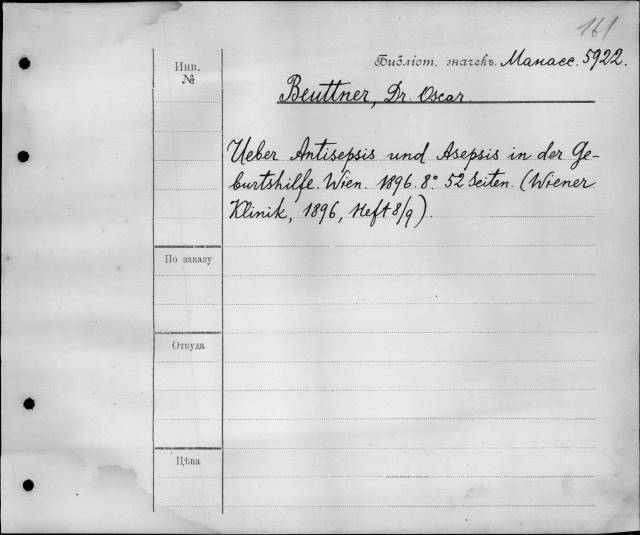 161
Библіот. значекъ. Манасс. 5922.
Инв.
№
Beuttner, Dr. Oscar.
Ueber Antisepsis und Asepsis in der Ge-
burtshilfe. Wien. 1896. 8° 52 Seiten. (Wiener
Klinik, 1896, Heft 8/9).
По заказу
Откуда
Цѣна